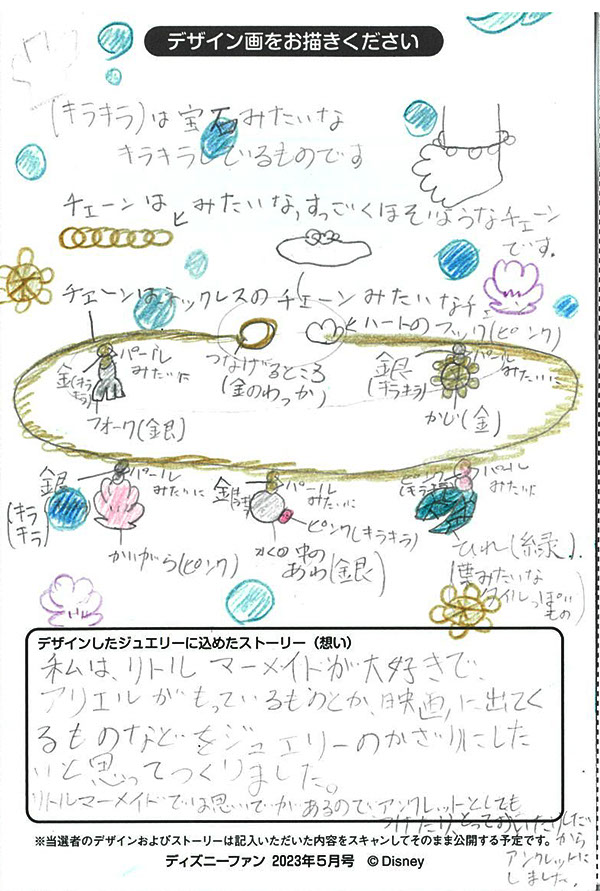 デザイン画をお描きください
(キラキラ)は宝石みたいな
キラキラしているものです
チェーンは みたいな,すっごくほそいようなチェーン
です.
チェーンは、ネックレスのチェーンみたいなチェ
ハートのフック(ピンク)
つなげるところ
(金のわっか)
パール
みたいに
金(キラキラ)
フォーク(銀)
銀
(キラキラ)
パール
みたいに
かじ(金)
銀
(キラキラ)
パール
みたいに
かいがら(ピンク)
金
パール
みたいに
ピンク(キラキラ)
水の中の
あわ(銀)
ピンク
(キラキラ)
パール
みたいに
ひれ(緑).
(葉みたいな
タイルっぽい
もの)
デザインしたジュエリーに込めたストーリー(想い)
私は、リトル マーメイドが大好きで、
アリエルがもっているものとか、映画に出てく
るものなどをジュエリーのかざりにした
いと思ってつくりました。
リトルマーメイドでは思いでがあるのでアンクレットとしても
つけたり、とっておいたりしたい
から
アンクレットに
しました。
※当選者のデザインおよびストーリーは記入いただいた内容をスキャンしてそのまま公開する予定です。
ディズニーファン 2023年5月号 ©Disney